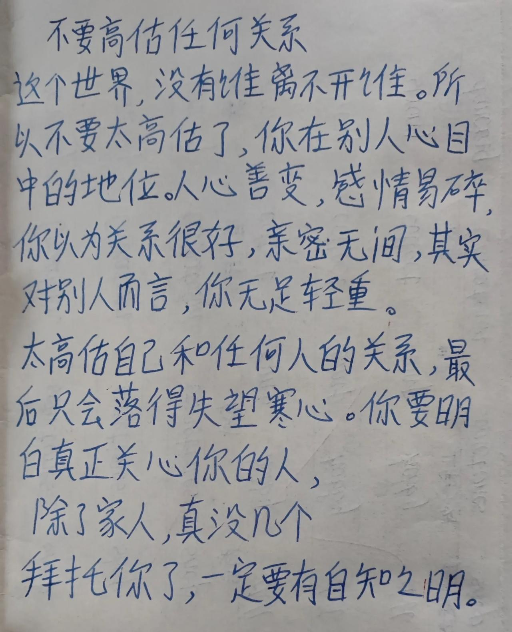 不要高估任何关系
这个世界,没有谁离不开谁。所
以不要太高估了,你在别人心目
中的地位。人心善变,感情易碎,
你以为关系很好,亲密无间,其实
对别人而言,你无足轻重。
太高估自己和任何人的关系,最
后只会落得失望寒心。你要明
白真正关心你的人,
除了家人,真没几个
拜托你了,一定要有自知之明。